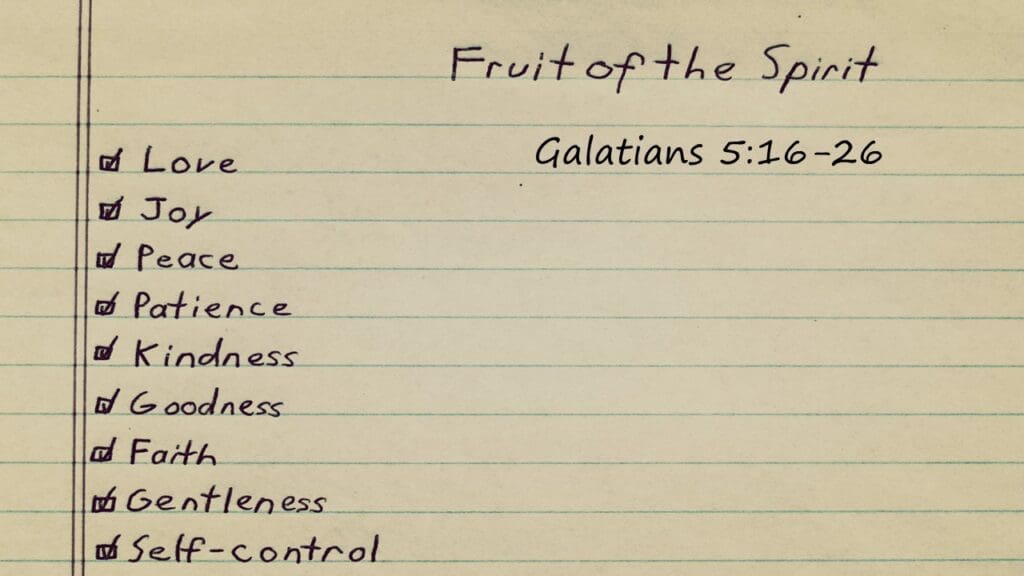 Fruit of the Spirit
Galatians 5:16-26
Love
Joy
Peace
Patience
Kindness
Goodness
Faith
Gentleness
Self-control